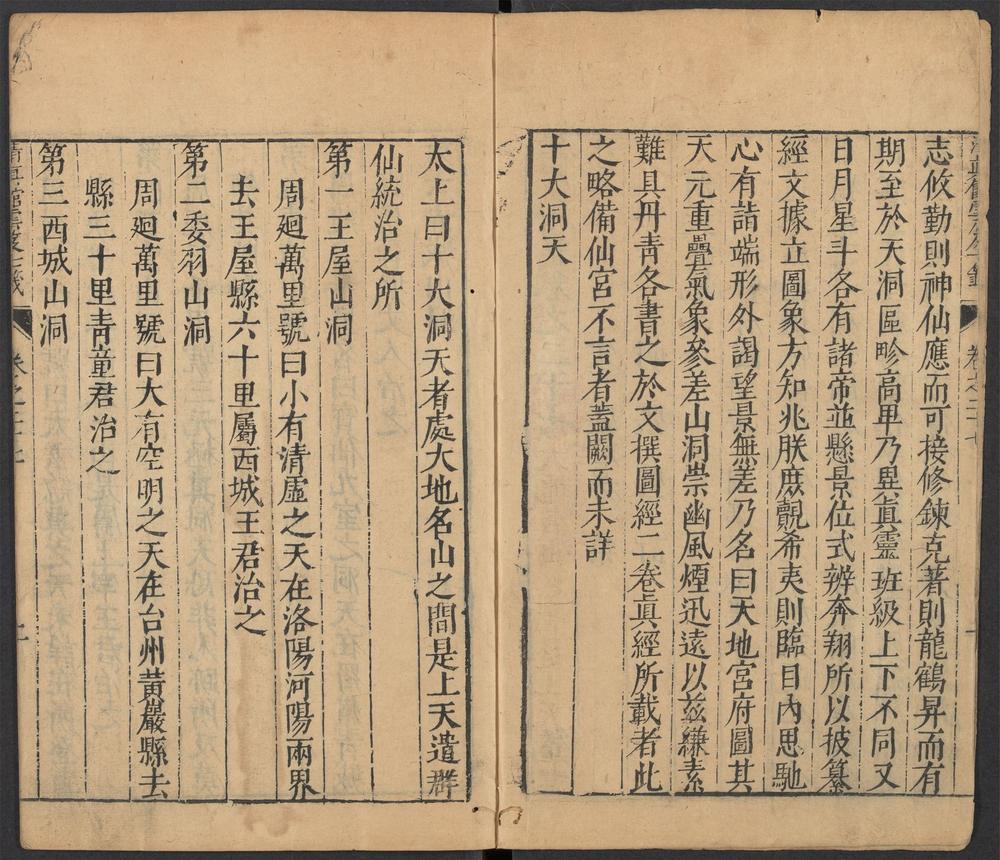 志攸勤則神仙應而可接修鍊克著則龍鶴昇而有
期至於天洞區畛高卑乃異眞靈班級上下不同又
日月星斗各有諸帝並懸景位式辨奔翔所以披纂
經文據立圖象方知兆朕庶覿希夷則臨目內思馳
心有詣端形外謁望景無差乃名曰天地宮府圖其
天元重疊氣象參差山洞崇幽風煙迅遠以茲縑素
難具丹青各書之於文撰圖經二卷眞經所載者此
之略備仙宮不言者蓋闕而未詳
十大洞天
太上曰十大洞天者處大地名山之間是上天遣群
仙統治之所
第一王屋山洞
周廻萬里號曰小有清虛之天在洛陽河陽兩界
去王屋縣六十里屬西城王君治之
第二委羽山洞
周廻萬里號曰大有空明之天在台州黄巖縣去
縣三十里青童君治之
第三西城山洞
卷之二十七